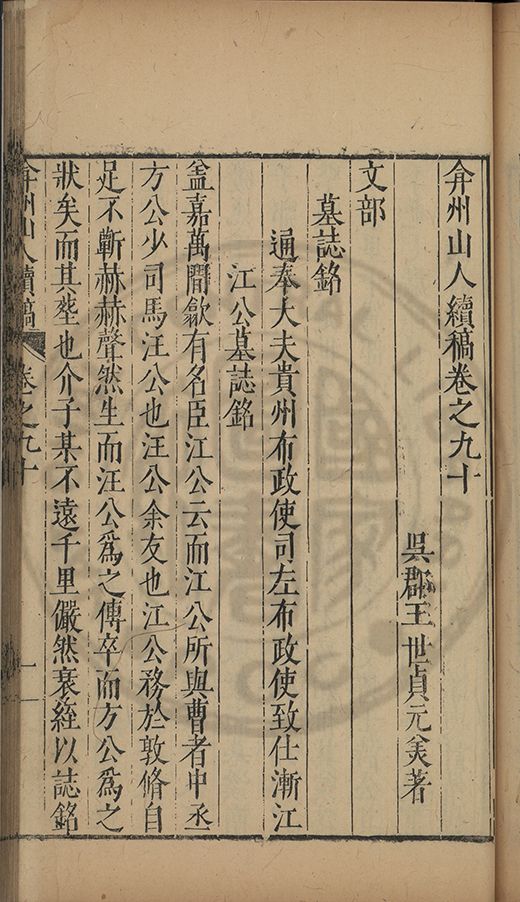 弇州山人續稿卷之九十
吳郡王世貞元美著
文部
墓誌銘
通奉大夫貴州布政使司左布政使致仕漸江
江公墓誌銘
盖嘉萬間歙有名臣江公云而江公所與曹者中丞
方公少司馬汪公也汪公余友也江公務於敦脩自
足不蘄赫赫聲然生而汪公爲之傳卒而方公爲之
狀矣而其塟也介子某不遠千里儼然衰絰以誌銘
弇州山人續稿 卷之九十 一